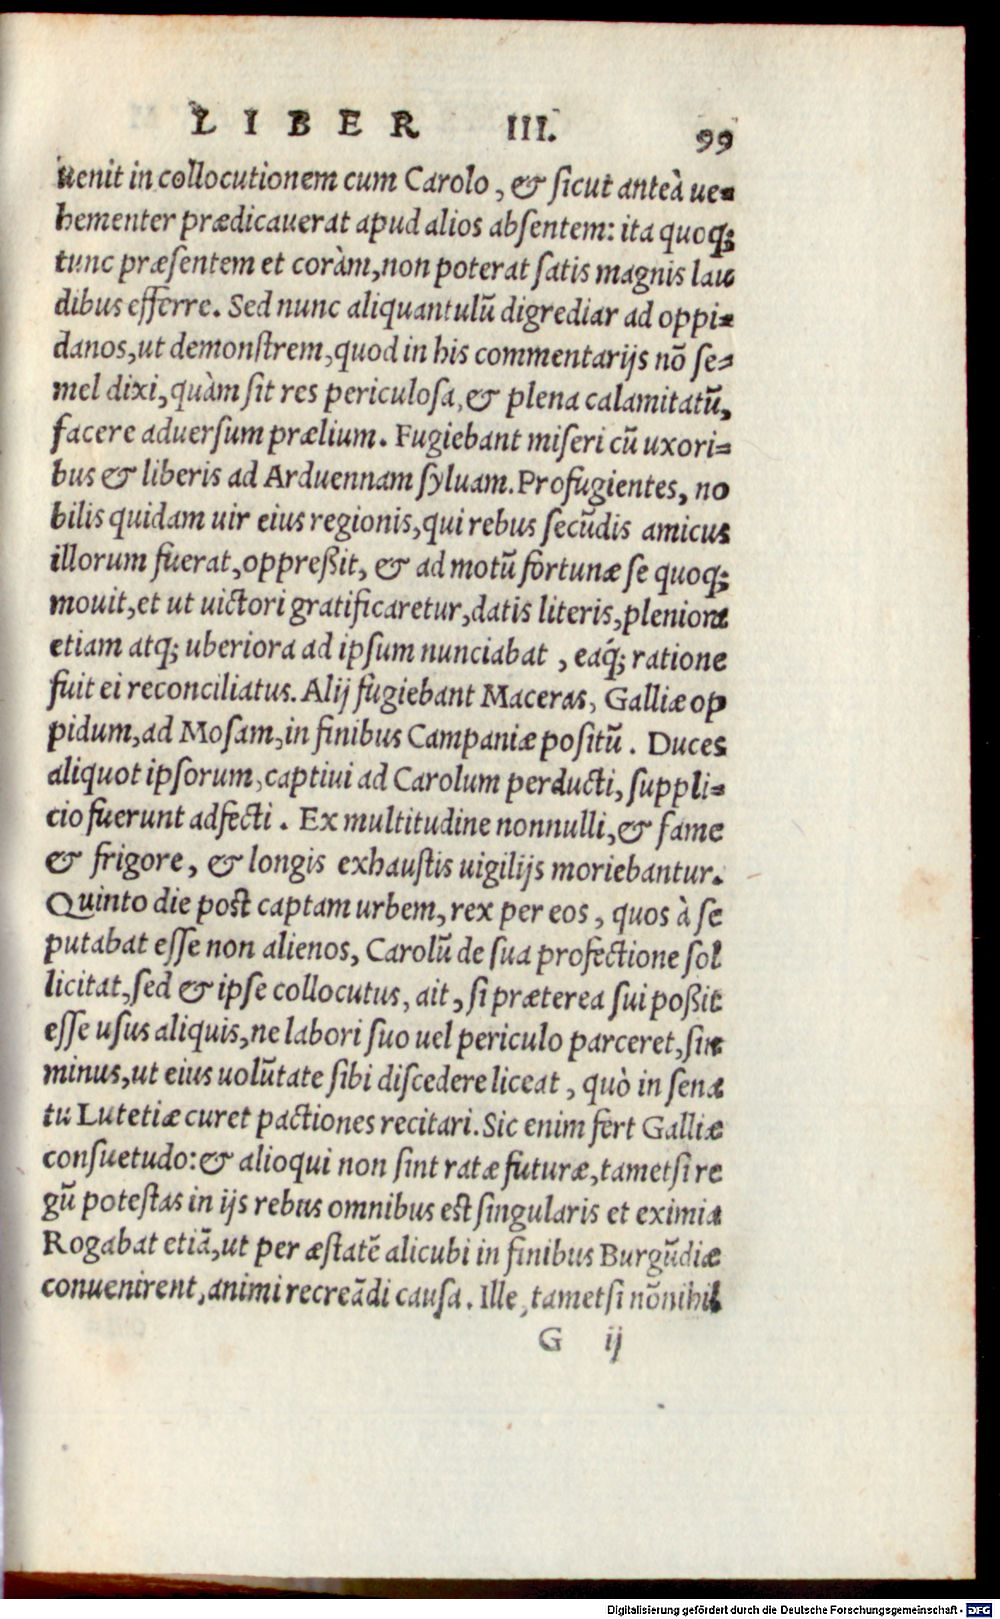 LIBER III. 99
uenit in collocutionem cum Carolo, & sicut anteà ue=
hementer prædicauerat apud alios absentem: ita quoq;
tunc præsentem et coràm, non poterat satis magnis lau
dibus efferre. Sed nunc aliquantulū digrediar ad oppi=
danos, ut demonstrem, quod in his commentarijs nō se=
mel dixi, quàm sit res periculosa, & plena calamitatū,
facere aduersum prælium. Fugiebant miseri cū uxori=
bus & liberis ad Arduennam syluam. Profugientes, no
bilis quidam uir eius regionis, qui rebus secūdis amicus
illorum fuerat, oppreßit, & ad motū fortunæ se quoq;
mouit, et ut uictori gratificaretur, datis literis, pleniora
etiam atq; uberiora ad ipsum nunciabat, eaq́; ratione
fuit ei reconciliatus. Alij fugiebant Maceras, Galliæ op
pidum, ad Mosam, in finibus Campaniæ positū. Duces
aliquot ipsorum, captiui ad Carolum perducti, suppli=
cio fuerunt adfecti. Ex multitudine nonnulli, & fame
& frigore, & longis exhaustis uigilijs moriebantur.
Quinto die post captam urbem, rex per eos, quos à se
putabat esse non alienos, Carolū de sua profectione sol
licitat, sed & ipse collocutus, ait, si præterea sui poßit
esse usus aliquis, ne labori suo uel periculo parceret, sin
minus, ut eius uolūtate sibi discedere liceat, quò in sena
tu Lutetiæ curet pactiones recitari. Sic enim fert Galliæ
consuetudo: & alioqui non sint ratæ futuræ, tametsi re
gū potestas in ijs rebus omnibus est singularis et eximia
Rogabat etiā, ut per æstatē alicubi in finibus Burgūdiæ
conuenirent, animi recreādi causa. Ille, tametsi nōnihil
G ij
Digitalisierung gefördert durch die Deutsche Forschungsgemeinschaft - DFG